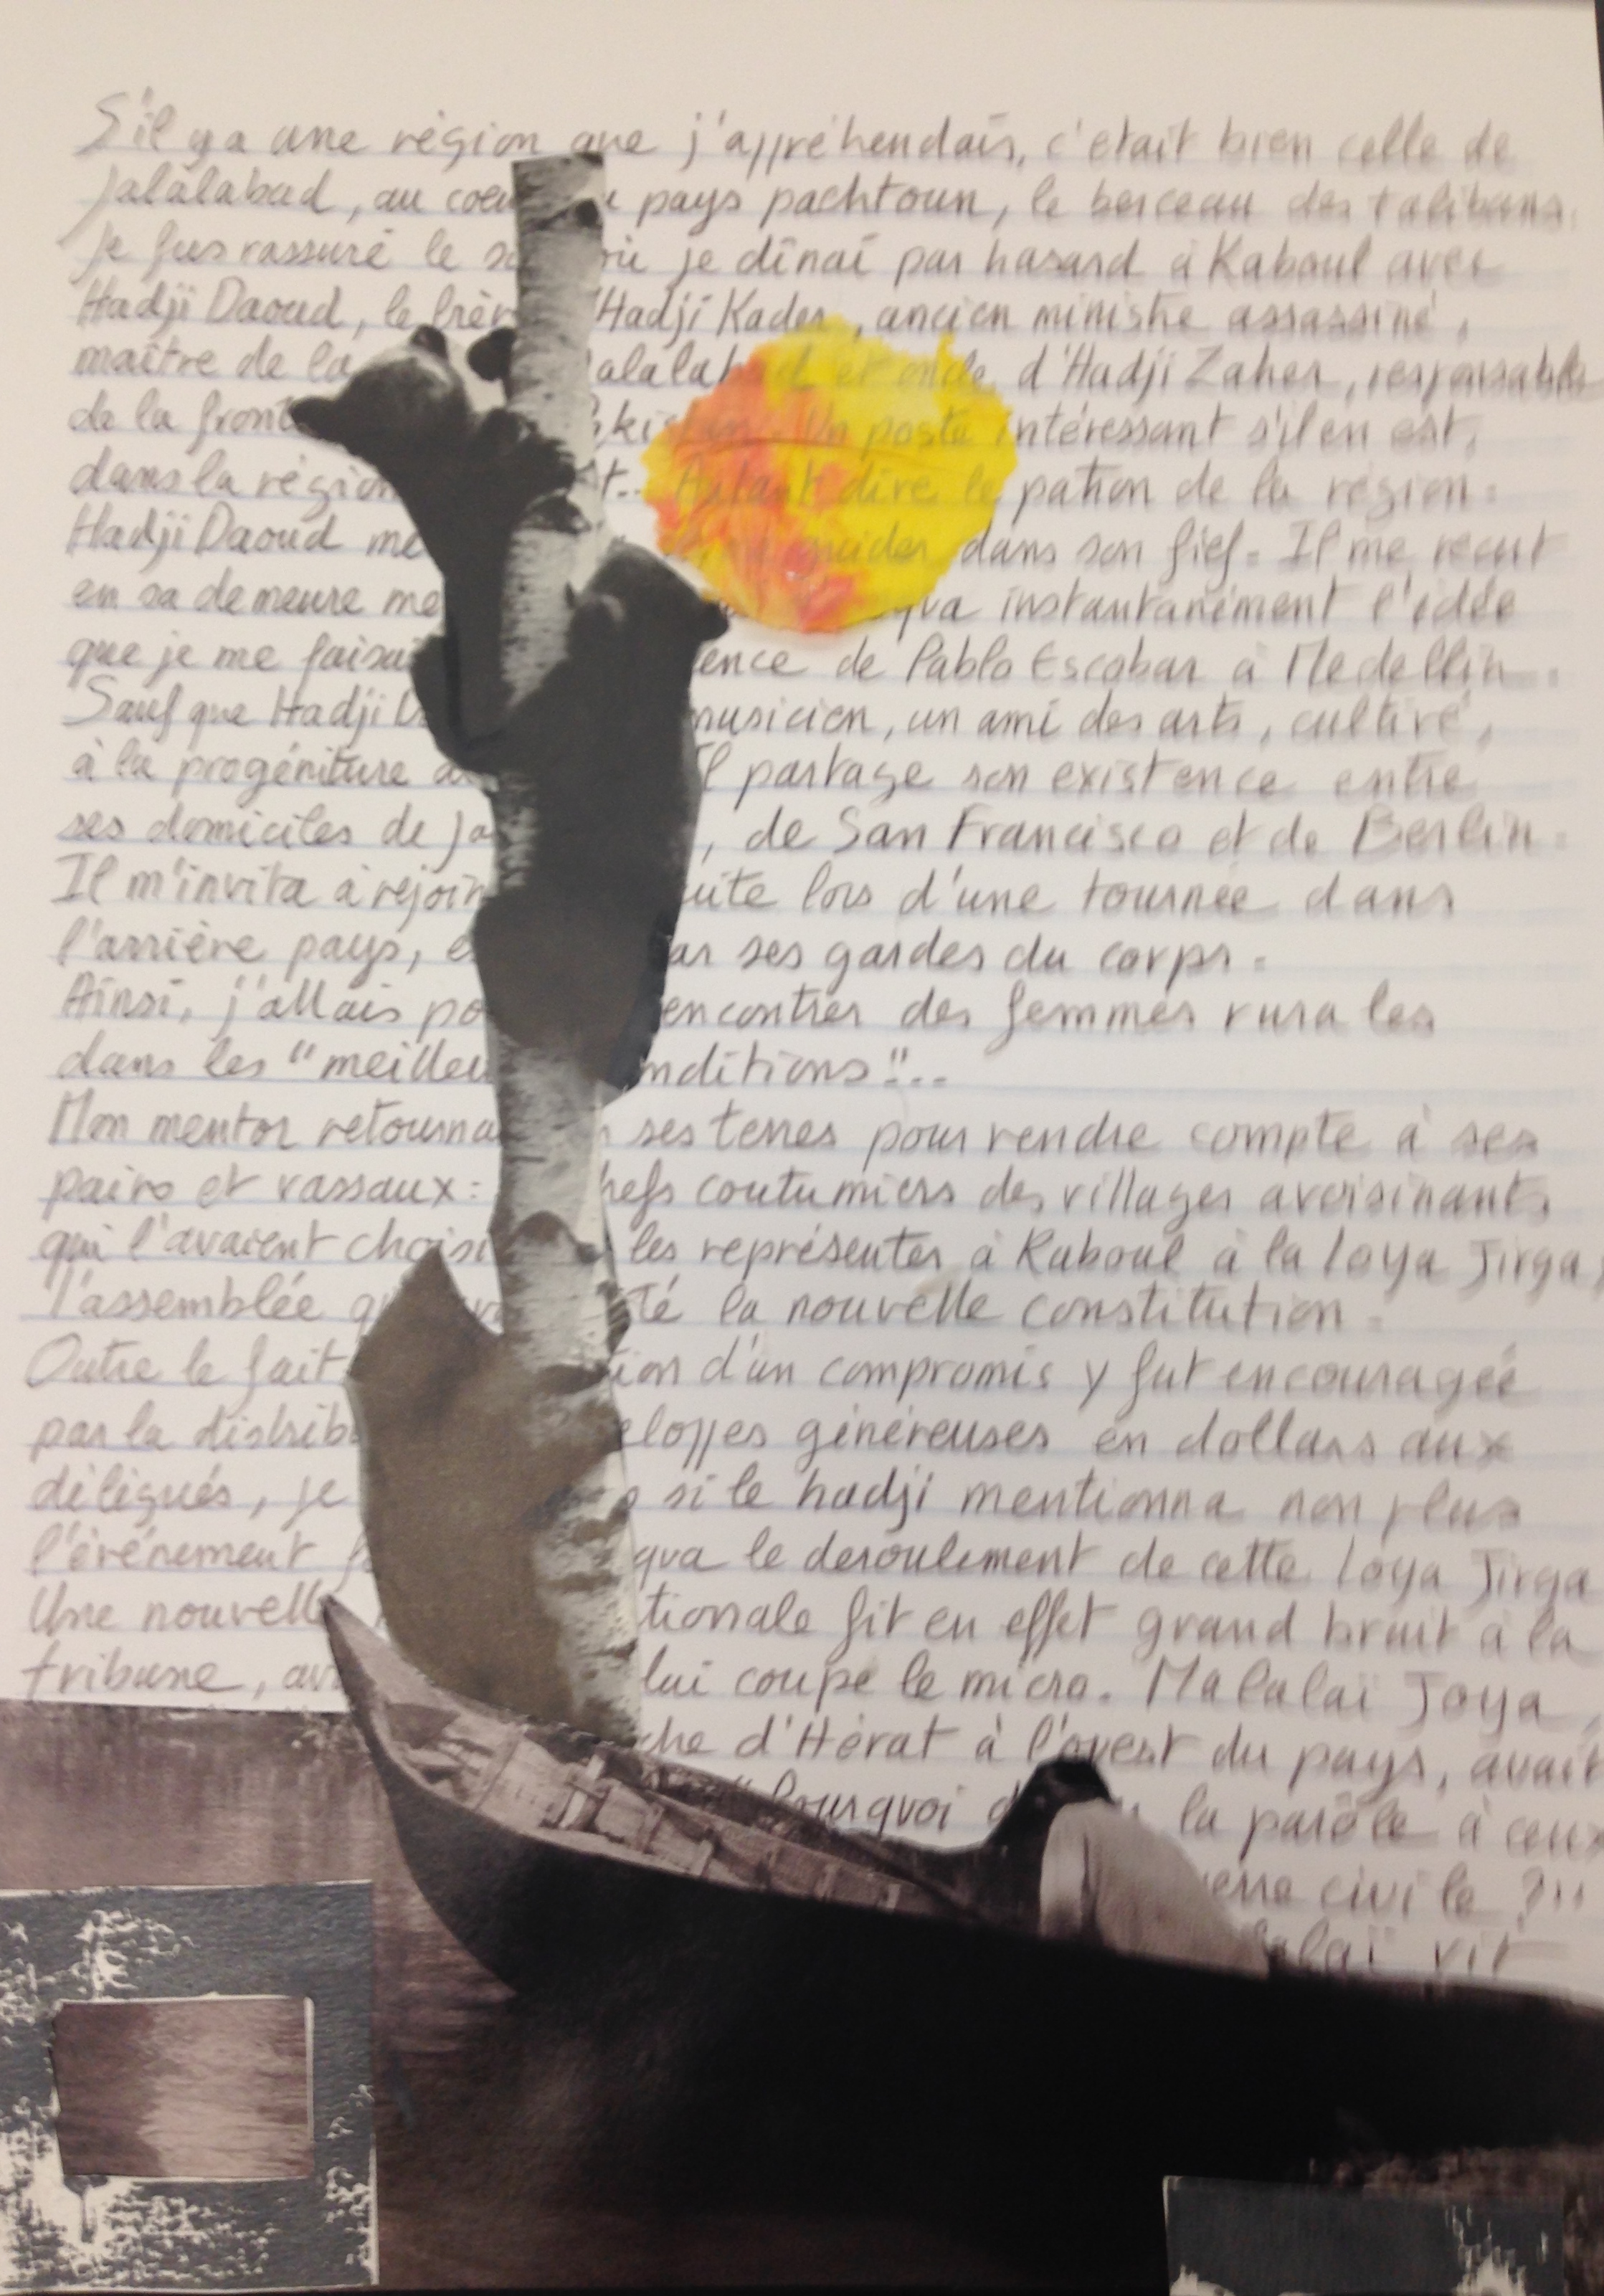 S'il y a une région que j'appréhendais, c'était bien celle de
Jalalabad, au coeu pays pachtoun, le berceau des talibans.
Je fus rassuré le so où je dînai par hasard à Kaboul avec
Hadji Daoud, le frèr Hadji Kader, ancien ministre assassiné,
maître de la alalabad et oncle d'Hadji Zaher, responsable
de la front kistan. Un poste intéressant s'il en est,
dans la région t... Autant dire le patron de la région.
Hadji Daoud me dans son fief. Il me reçut
en sa demeure me qua instantanément l'idée
que je me faisai ence de Pablo Escobar à Medellin.
Sauf que Hadji D musicien, un ami des arts, cultivé,
à la progéniture Il partage son existence entre
ses domiciles de Ja , de San Francisco et de Berlin.
Il m'invita à rejoin uite lors d'une tournée dans
l'arrière pays, e ar ses gardes du corps.
Ainsi, j'allais po encontrer des femmes rurales
dans les "meilleu nditions"...
Mon mentor retourna ses terres pour rendre compte à ses
pairs et vassaux: hefs coutumiers des villages avoisinants
qui l'avaient choisi les représenter à Kaboul à la loya Jirga,
l'assemblée q té la nouvelle constitution.
Outre le fait tion d'un compromis y fut encouragée
par la distrib eloppes généreuses en dollars aux
délégués, je si le hadji mentionna non plus
l'événement qua le deroulement de cette loya Jirga
Une nouvelle tionale fit en effet grand bruit à la
tribune, av lui coupe le micro. Malalaï Joya,
che d'Hérat à l'ouest du pays, avait
Pourquoi d la parole à ceux
erre civile ?!!
alaï vit